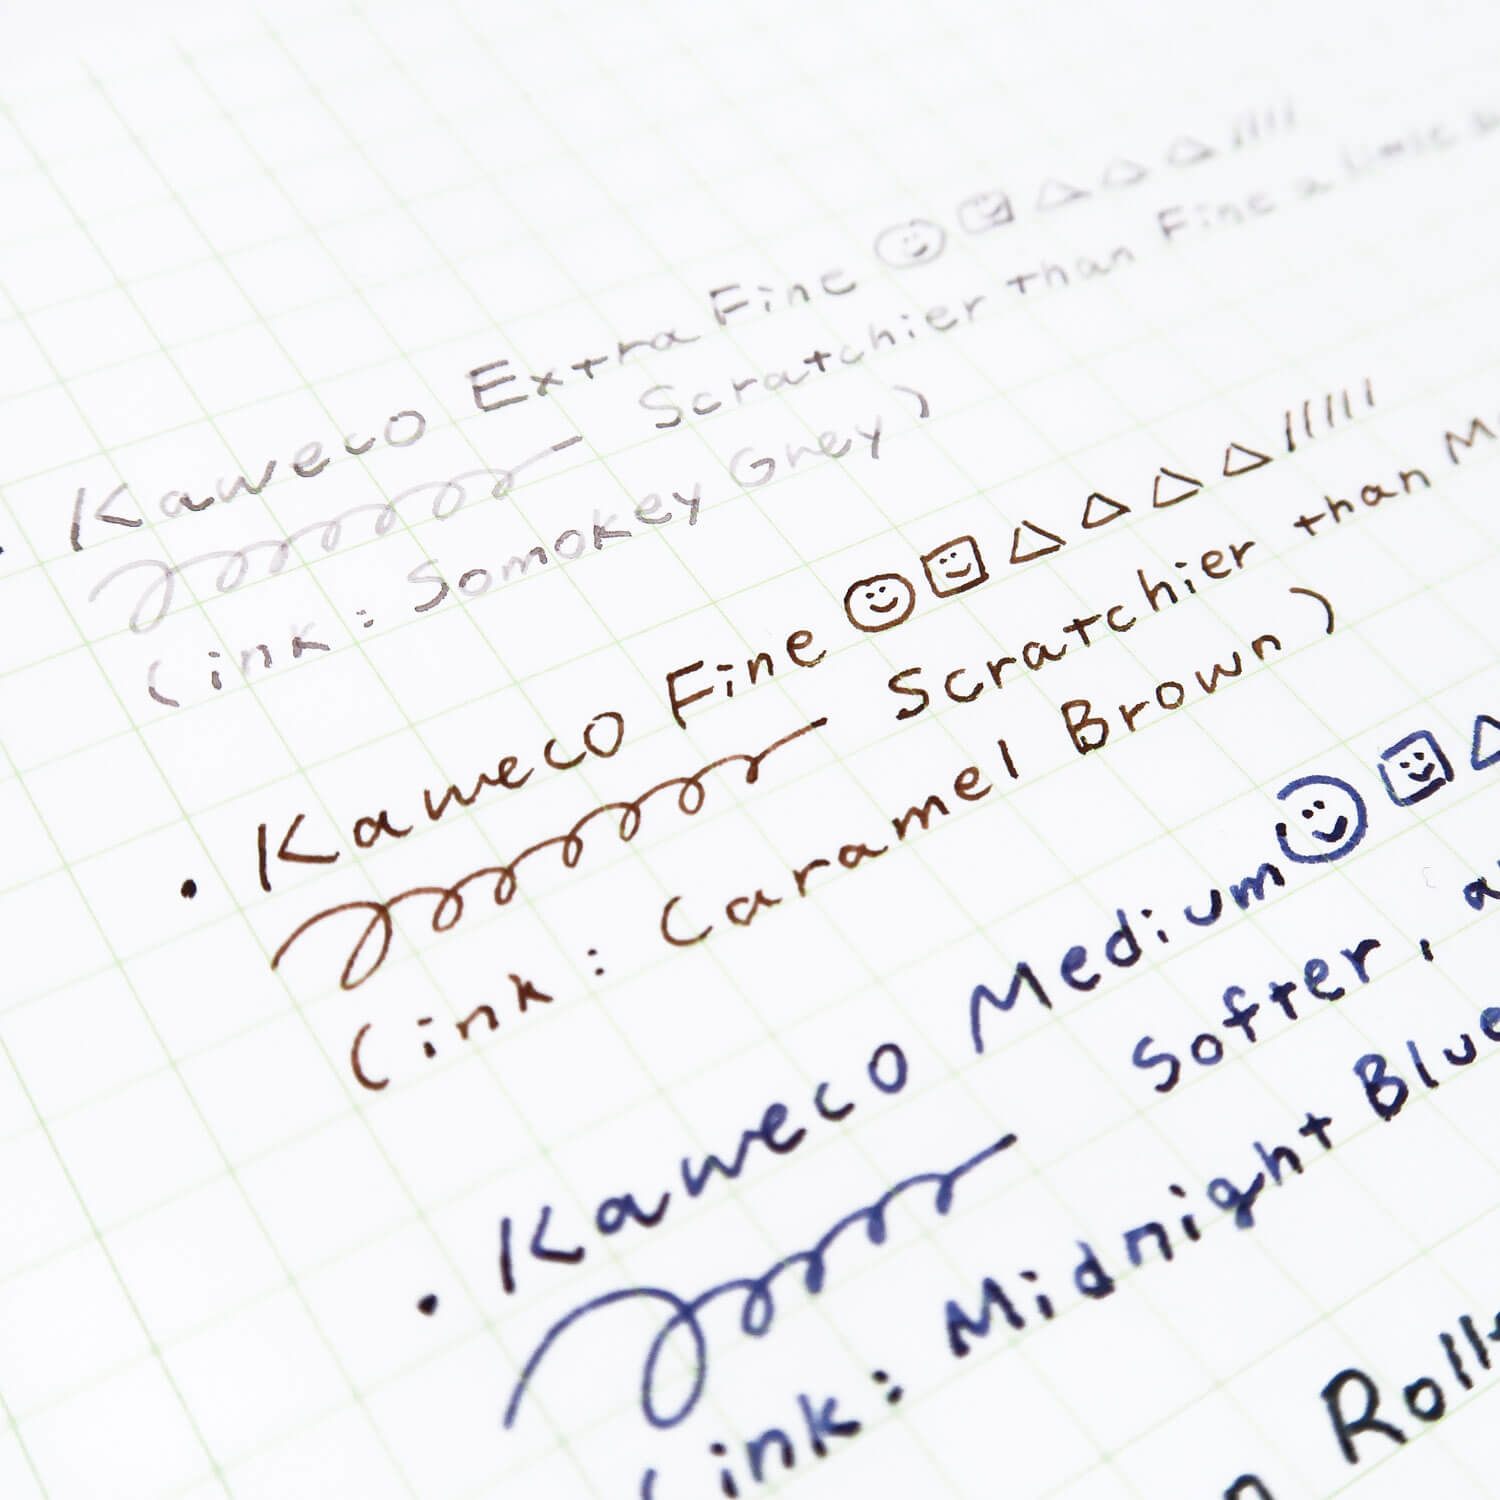 • Kaweco Extra Fine
Scratchier than Fine a little
(ink: Somokey Grey)
• Kaweco Fine
Scratchier than
(ink: Caramel Brown)
• Kaweco Medium
Softer,
(ink: Midnight Blue